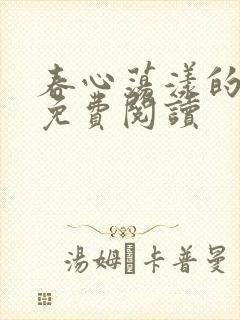 春心蕩漾的
免費閱讀
湯姆·卡普曼